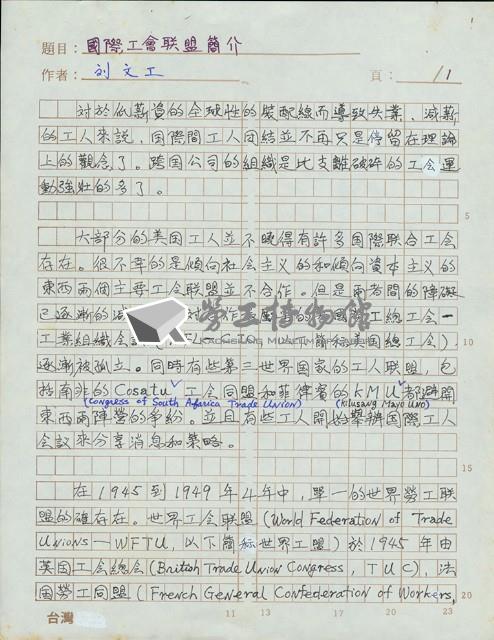 題目：國際工會联盟簡介
作者：刘文工
頁： /1
對於低薪資的全球性的裝配線而導致失業、減薪
的工人來說，国際間工人団結並不再只是停留在理論
上的觀念了。跨国公司的組織是比支離破碎的工会運
動強壯的多了。
5
大部分的美国工人並不曉得有許多国際联合工会
存在。很不幸的是傾向社会主义的和傾向資本主义的
東西兩個主要工会联盟並不合作。但是兩者間的障礙
已逐漸的 国際工总工会一
工業組織会 簡称美国總工会)
10
逐漸被孤立。同時有些第三世界国家的工人联盟，包
括南非的Cosatu 工会同盟和菲律賓的KMU都避開
(Congress of South Africa Trade Union) (Kilusang Mayo Uno)
東西兩陣營的爭紛。並且有些工人開始舉辦国際工人
会議來分享消息和策略。
勞工博物館
15
在1945到1949年4年中，單一的世界勞工联
盟的確存在。世界工会联盟(World Federation of Trade
Unions—WFTU，以下簡称世界工盟)於1945年由
英国工会總会(British Trade Union Congress，TUC)，法
国勞工同盟(French General Confederation of Workers,
20
台灣 11 13 17 20 23